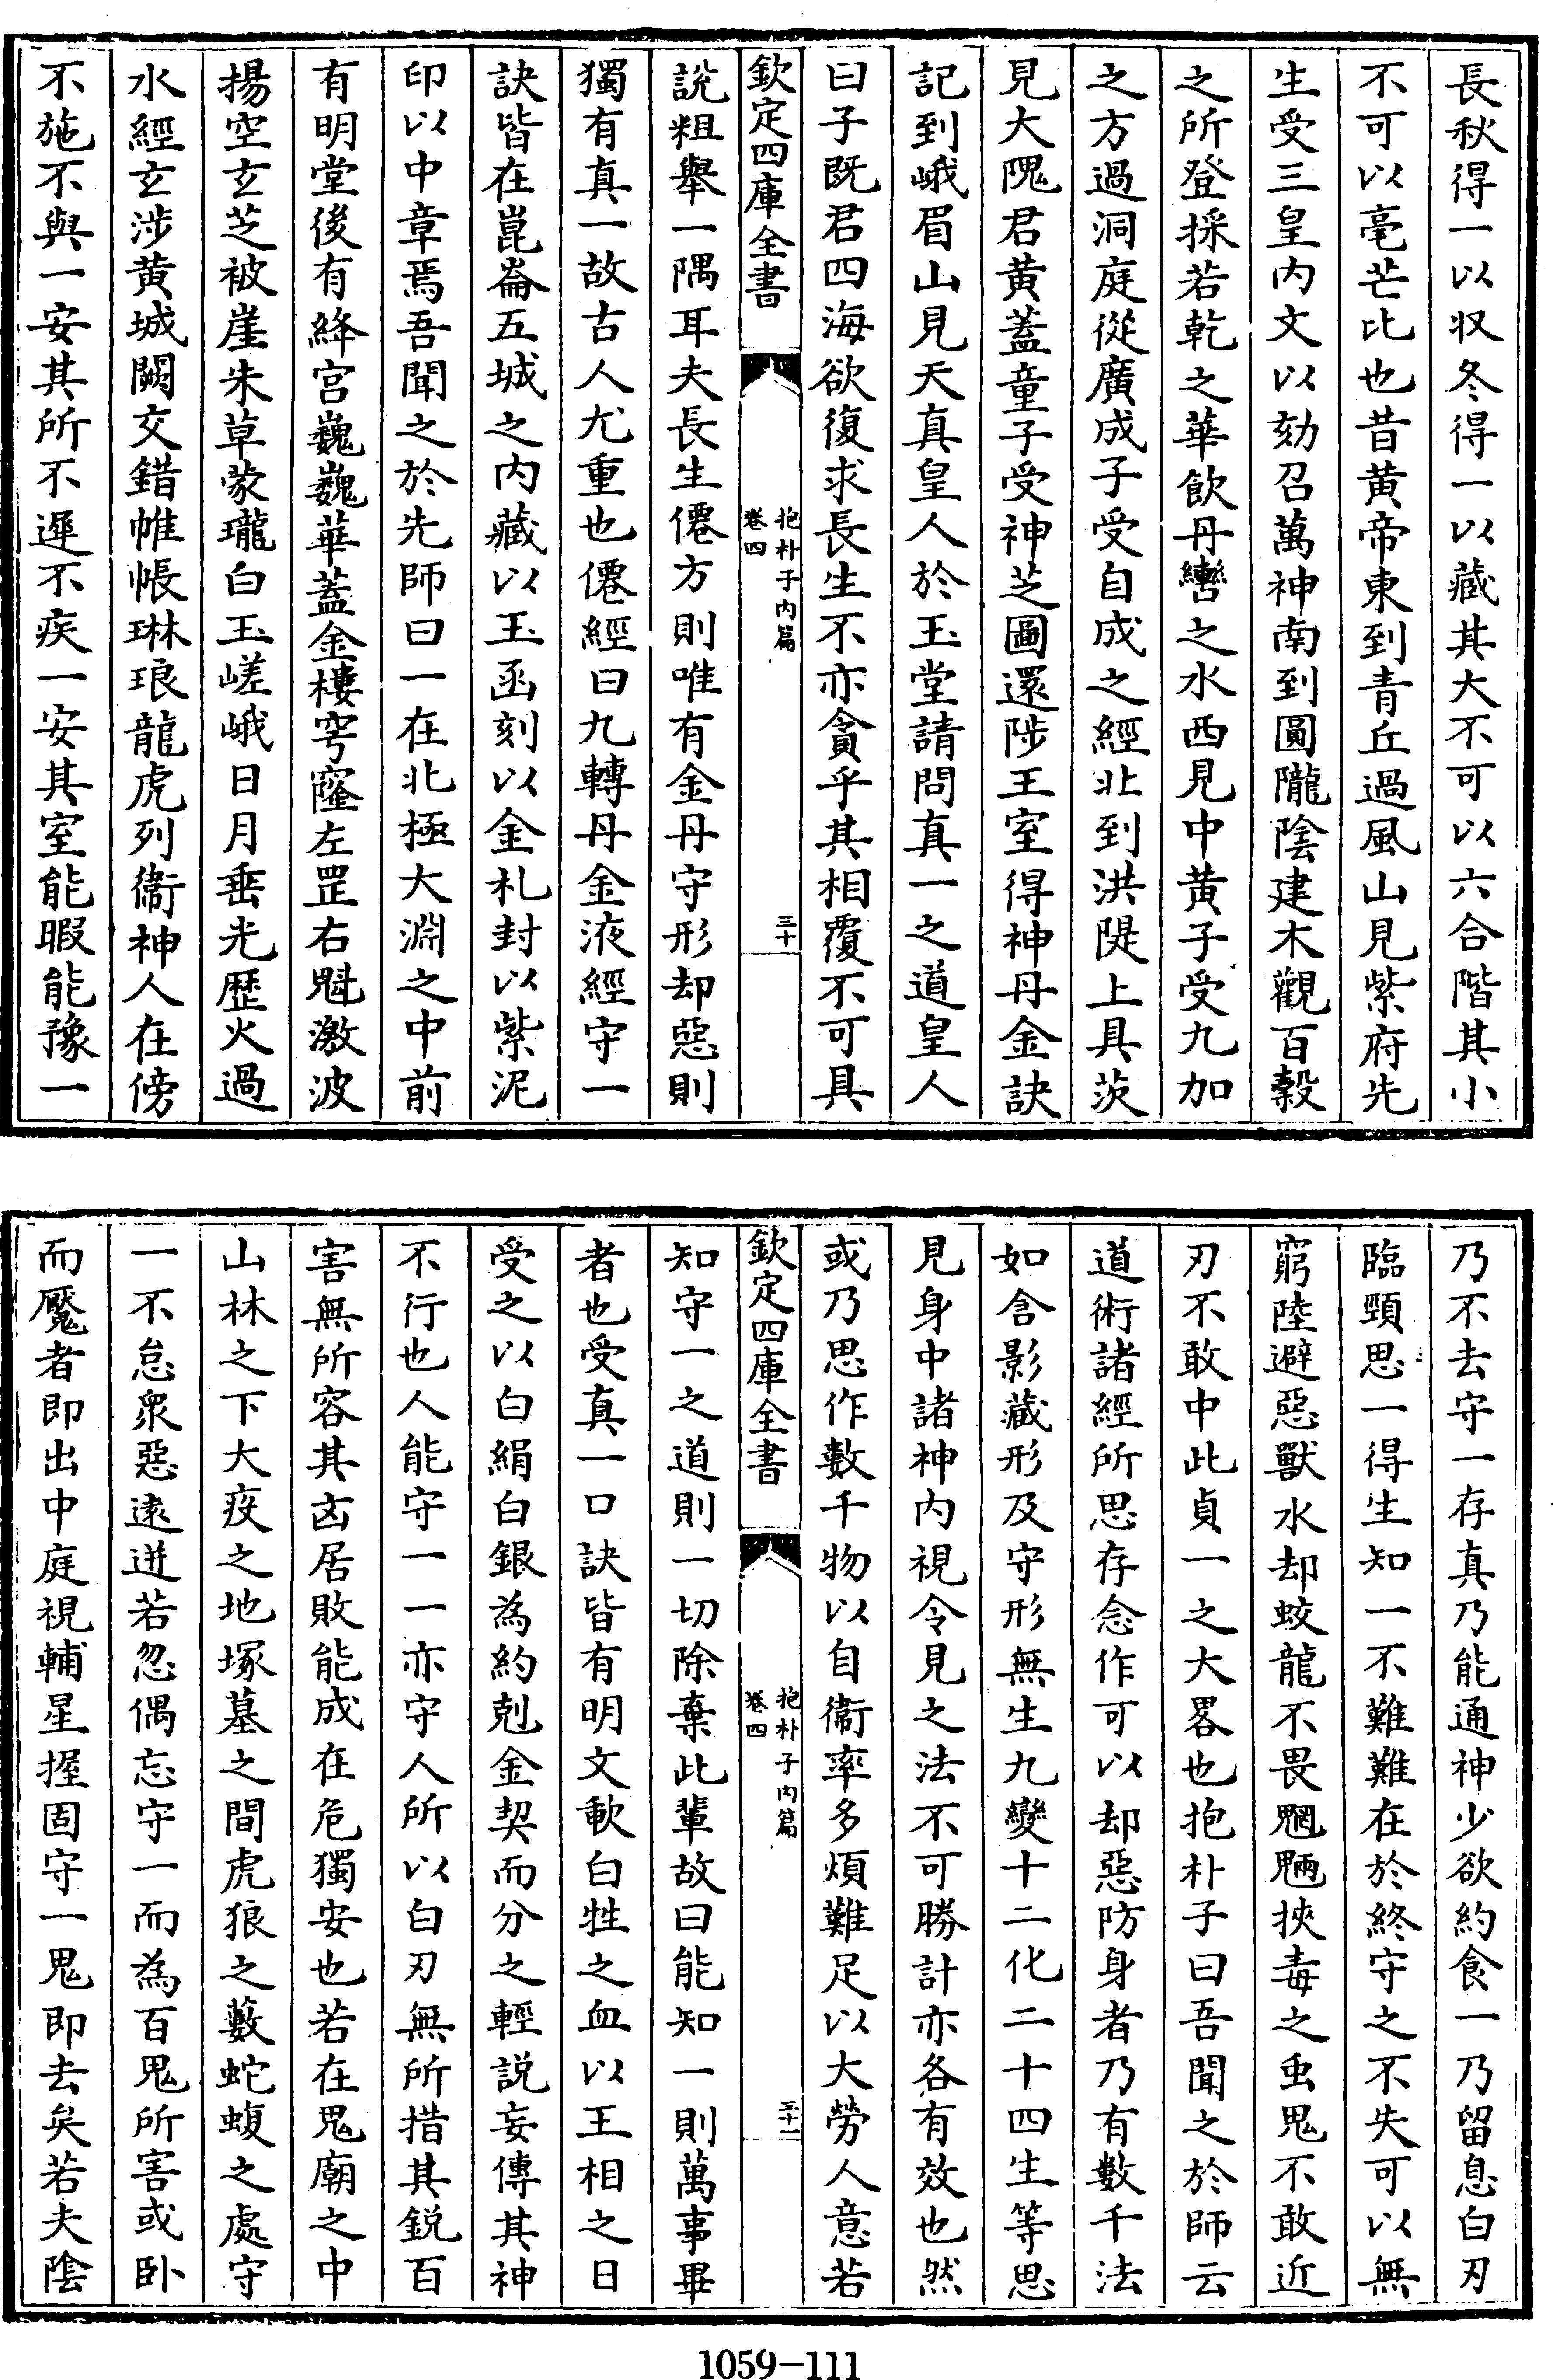 長秋得一以収冬得一以藏其大不可以六合階其小
不可以毫芒比也昔黄帝東到青丘過風山見紫府先
生受三皇内文以劾召萬神南到圓隴陰建木觀百糓
之所登採若乾之華飲丹巒之水西見中黄子受九加
之方過洞庭從廣成子受自成之經北到洪隄上具茨
見大隗君黄蓋童子受神芝圖還陟王室得神丹金訣
記到峨眉山見天真皇人於玉堂請問真一之道皇人
曰子既君四海欲復求長生不亦貪乎其相覆不可具
欽定四庫全書
抱朴子内篇
卷四
三十
說粗舉一隅耳夫長生僊方則唯有金丹守形却惡則
獨有真一故古人尤重也僊經曰九轉丹金液經守一
訣皆在崑崙五城之内藏以玉函刻以金札封以紫泥
印以中章焉吾聞之於先師曰一在北極大淵之中前
有明堂後有絳宫巍巍華蓋金樓穹窿左罡右魁激波
揚空玄芝被崖朱草蒙瓏白玉嵯峨日月垂光歴火過
水經玄涉黄城闕交錯帷帳琳琅龍虎列衞神人在傍
不施不與一安其所不遲不疾一安其室能暇能豫一
乃不去守一存真乃能通神少欲約食一乃留息白刃
臨頸思一得生知一不難難在於終守之不失可以無
窮陸避惡獸水却蛟龍不畏魍魎挾毒之虫鬼不敢近
刃不敢中此貞一之大畧也抱朴子曰吾聞之於師云
道術諸經所思存念作可以却惡防身者乃有數千法
如含影藏形及守形無生九變十二化二十四生等思
見身中諸神内視令見之法不可勝計亦各有效也然
或乃思作數千物以自衞率多煩難足以大勞人意若
欽定四庫全書
抱朴子内篇
卷四
三十一
知守一之道則一切除棄此輩故曰能知一則萬事畢
者也受真一口訣皆有明文歃白牲之血以王相之日
受之以白絹白銀為約剋金契而分之輕説妄傳其神
不行也人能守一一亦守人所以白刃無所措其鋭百
害無所容其凶居敗能成在危獨安也若在鬼廟之中
山林之下大疫之地塚墓之間虎狼之藪蛇蝮之處守
一不怠衆惡遠迸若忽偶忘守一而為百鬼所害或卧
而魘者即出中庭視輔星握固守一鬼即去矣若夫陰
1059-111